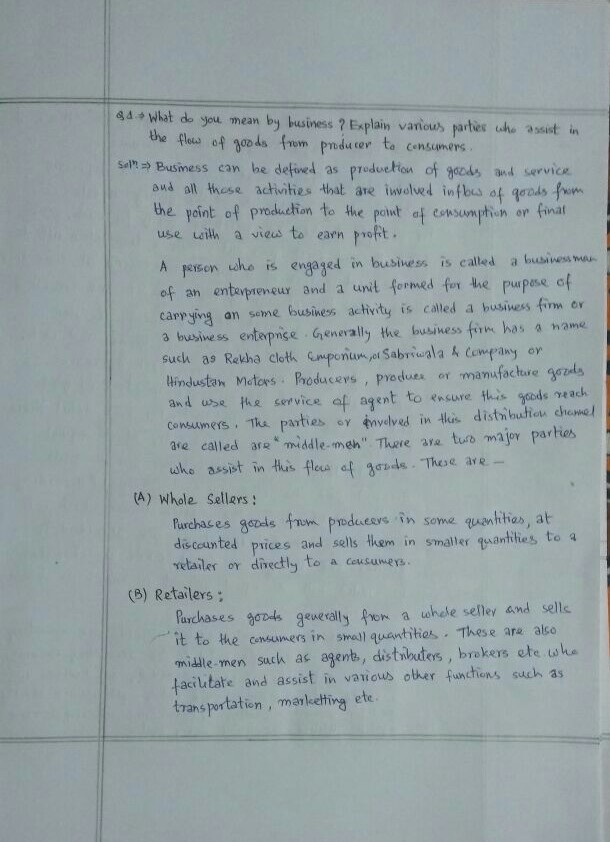 Q1.⇒ What do you mean by business ? Explain various parties who assist in
the flow of goods from producer to consumers.
Solⁿ ⇒ Business can be defined as production of goods and service
and all those activities that are involved inflow of goods from
the point of production to the point of consumption or final
use with a view to earn profit.
A person who is engaged in business is called a businessman
of an enterpreneur and a unit formed for the purpose of
carrying on some business activity is called a business firm or
a business enterprise. Generally the business firm has a name
such as Rekha Cloth Emporium, or Sabriwala & Company or
Hindustan Motors. Producers, produce or manufacture goods
and use the service of agent to ensure this goods reach
consumers. The parties or involved in this distribution channel
are called are "middle-men". There are two major parties
who assist in this flow of goods. These are —
(A) Whole Sellers :
Purchases goods from producers in some quantities, at
discounted prices and sells them in smaller quantities to a
retailer or directly to a consumers.
(B) Retailers :
Purchases goods generally from a whole seller and sells
it to the consumers in small quantities. These are also
middle-men such as agents, distributers, brokers etc who
facilitate and assist in various other functions such as
transportation, marketting etc.